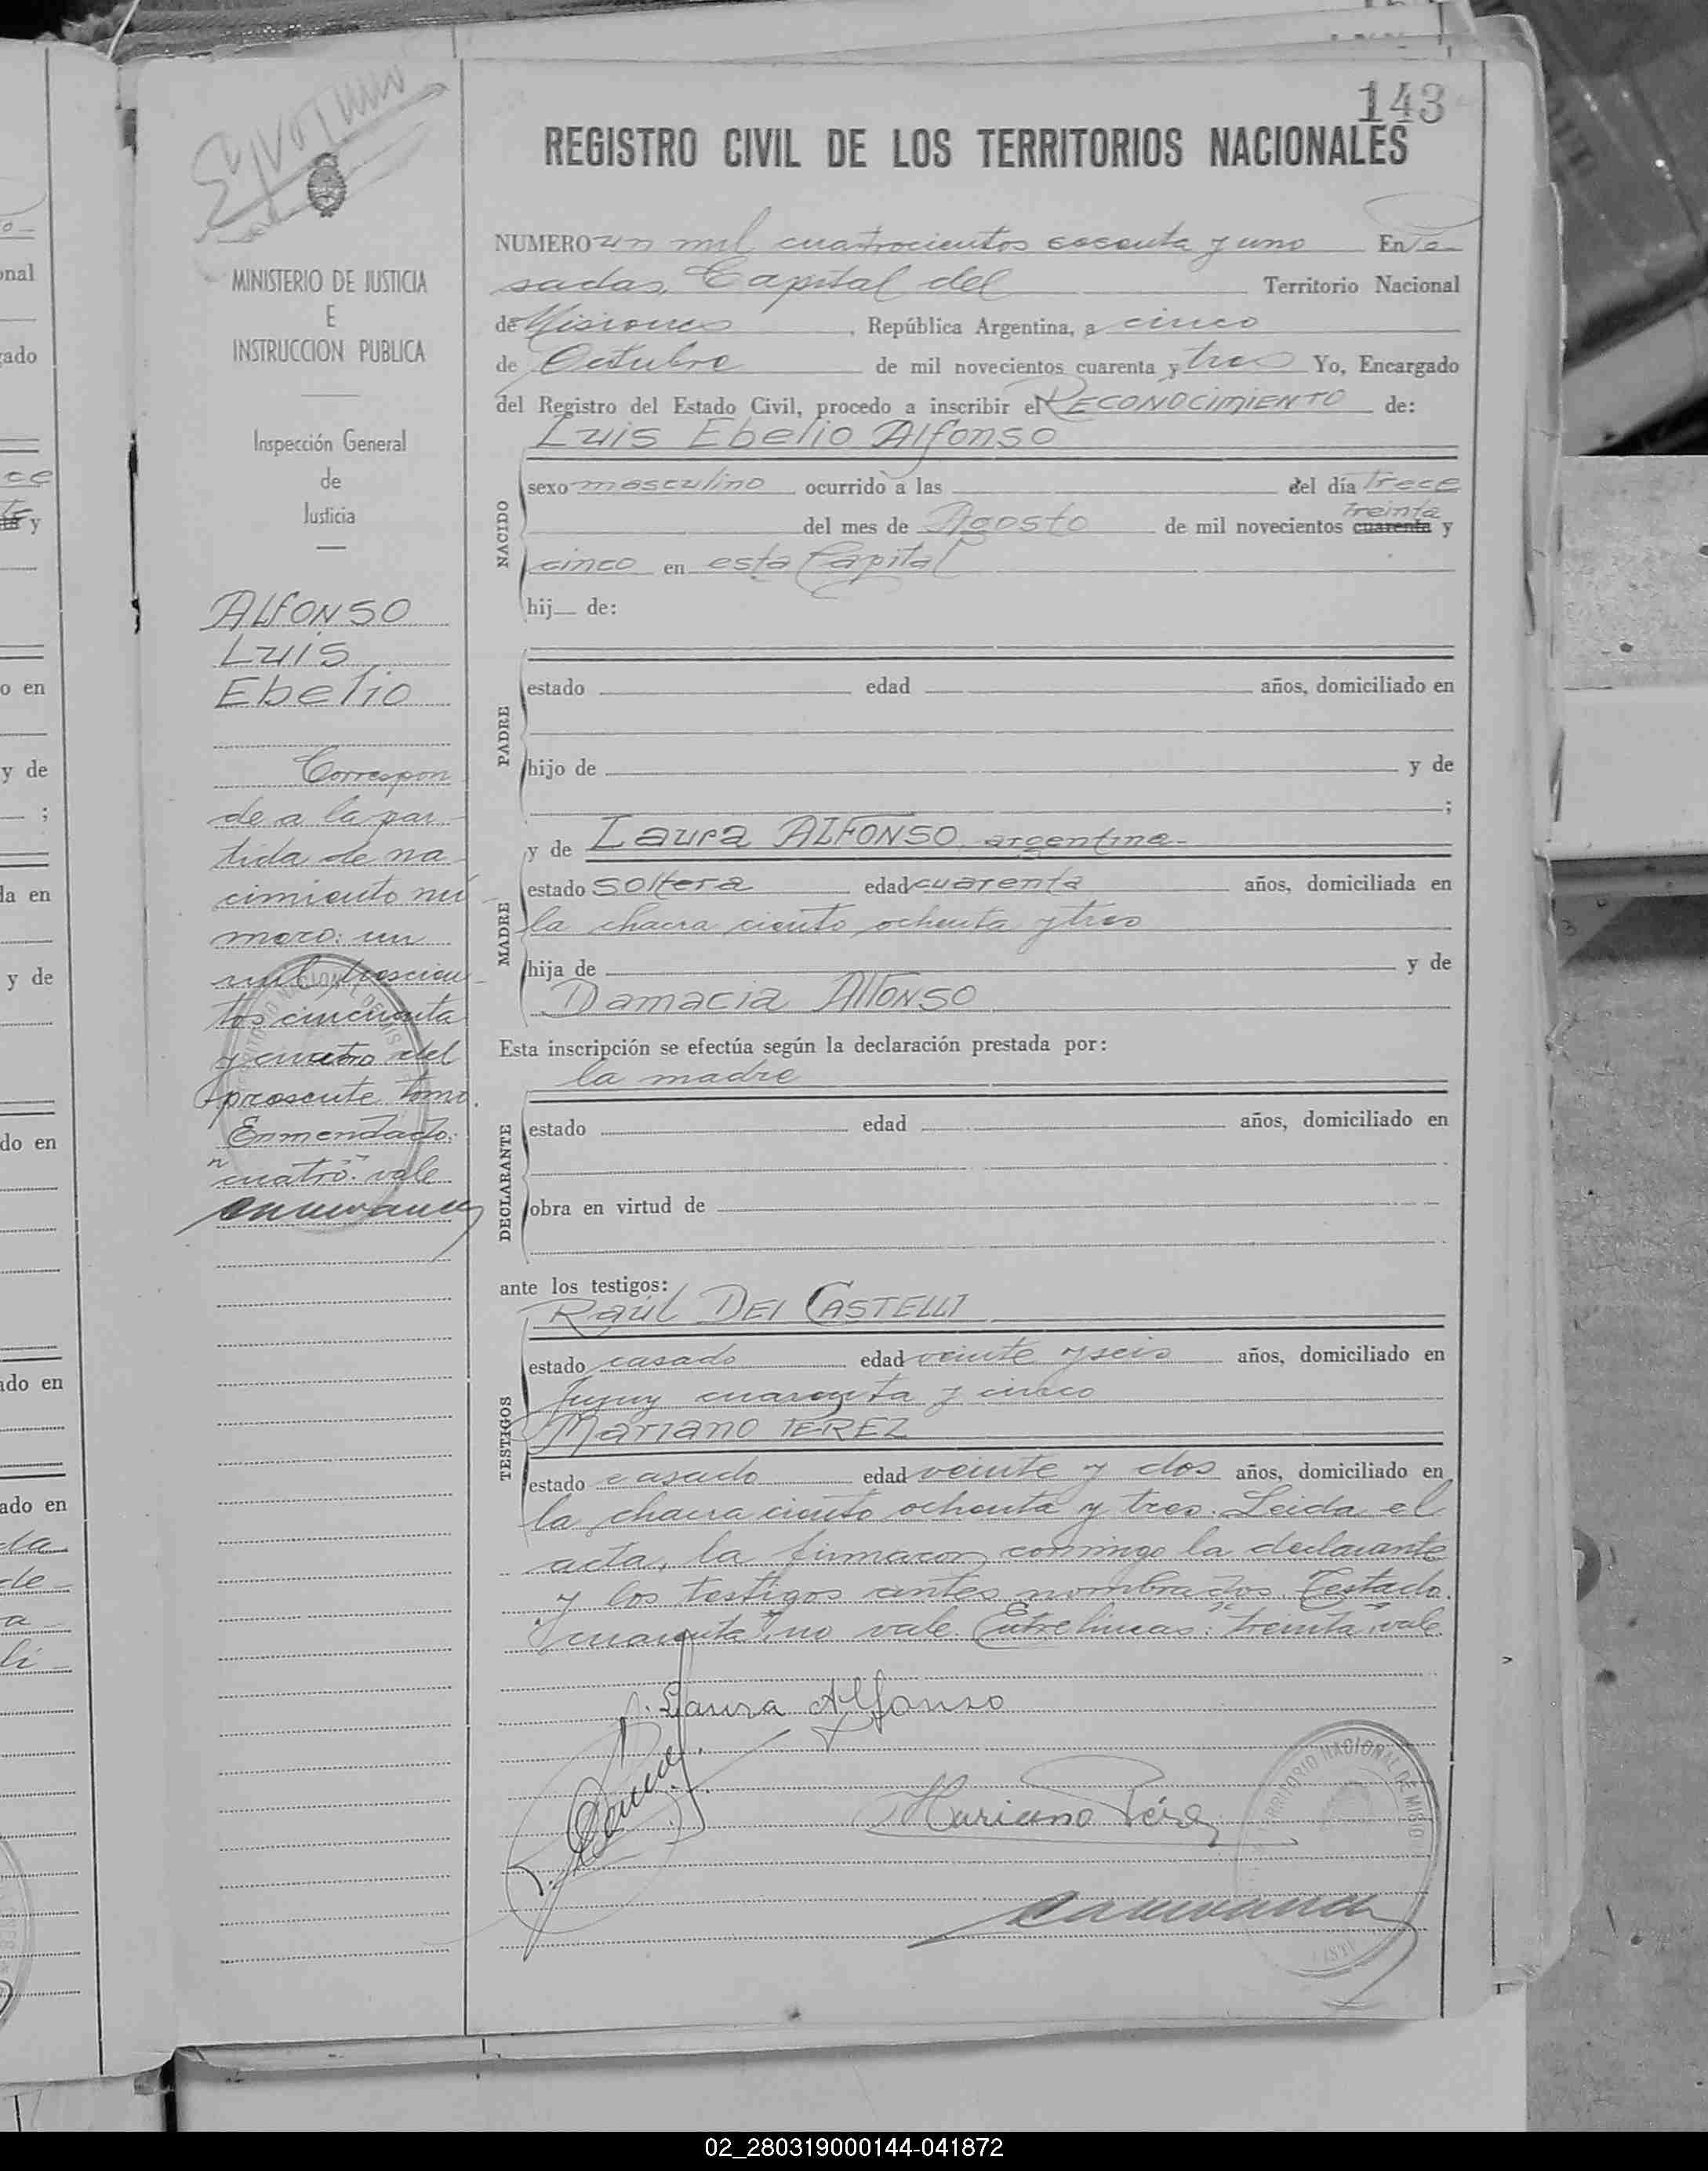 143
REGISTRO CIVIL DE LOS TERRITORIOS NACIONALES
NUMERO un mil cuatrocientos sesenta y uno En Po
sadas, Capital del Territorio Nacional
de Misiones, República Argentina, a cinco
de Octubre de mil novecientos cuarenta y tres Yo, Encargado
del Registro del Estado Civil, procedo a inscribir el RECONOCIMIENTO de:
Luis Ebelio Alfonso
NACIDO
sexo masculino ocurrido a las del día trece
treinta
del mes de Agosto de mil novecientos cuarenta y
cinco en esta Capital
hij de:
PADRE
estado edad años, domiciliado en
hijo de y de
;
y de Laura ALFONSO argentina-
MADRE
estado soltera edad cuarenta años, domiciliada en
la chacra ciento ochenta y tres
hija de y de
Damacia Alfonso
Esta inscripción se efectúa según la declaración prestada por:
la madre
DECLARANTE
estado edad años, domiciliado en
obra en virtud de
ante los testigos:
Raúl DEI CASTELLI
TESTIGOS
estado casado edad veinte y seis años, domiciliado en
Jujuy cuarenta y cinco
Mariano PEREZ
estado casado edad veinte y dos años, domiciliado en
la chacra ciento ochenta y tres. Leida el
acta, la firmaron conmigo la declarante
y los testigos antes nombrados. Testado.
"cuarenta" no vale. Entrelineas: "treinta" vale.
Laura Alfonso
Mariano Pérez
TERRITORIO NACIONAL DE MISIO
MINISTERIO DE JUSTICIA
E
INSTRUCCION PUBLICA
Inspección General
de
Justicia
ALFONSO
Luis
Ebelio
Correspon
de a la par-
tida de na-
cimiento nú
mero: un
mil trescien-
tos cincuenta
y cuatro del
presente tomo.
Enmendado:
"cuatro": vale
02_280319000144-041872